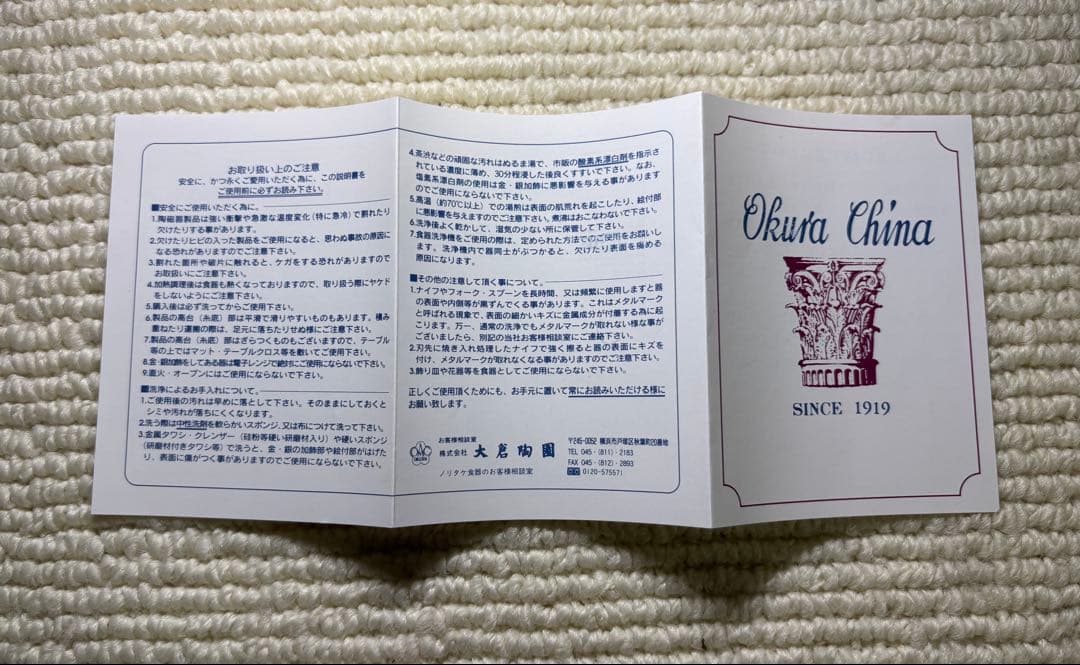 お取り扱い上のご注意
安全に、かつ永くご愛用いただく為に、この説明書を
ご使用前に必ずお読み下さい。
■安全にご使用いただく為に。
1.陶磁器製品は強い衝撃や急激な温度変化(特に急冷)で割れたり
欠けたりする事があります。
2.欠けたりヒビの入った製品をご使用になると、思わぬ事故の原因に
なる恐れがありますのでご注意下さい。
3.割れた箇所や破片に触れると、ケガをする恐れがありますので
お取扱いにご注意下さい。
4.加熱調理後は食器も熱くなっておりますので、取り扱う際にヤケド
をしないようにご注意下さい。
5.購入後は必ず洗ってからご使用下さい。
6.製品の高台(糸底)部は平滑で滑りやすいものもあります。積み
重ねたり運搬の際は、足元に落ちたりせぬ様にご注意下さい。
7.製品の高台(糸底)部はざらつくものもございますので、テーブル
等の上ではマット・テーブルクロス等を敷いてご使用下さい。
8.金・銀加飾をしてある器は電子レンジで絶対にご使用にならないで下さい。
9.直火・オーブンにはご使用にならないで下さい。
■洗浄によるお手入れについて。
1.ご使用後の汚れは早めに落として下さい。そのままにしておくと
シミや汚れが落ちにくくなります。
2.洗う際は中性洗剤を軟らかいスポンジ、又は布につけて洗って下さい。
3.金属タワシ・クレンザー(硅粉等硬い研磨材入り)や硬いスポンジ
(研磨材付きタワシ等)で洗うと、金・銀の加飾部や絵付部がはげた
り、表面に傷がつく事がありますのでご使用にならないで下さい。
4.茶渋などの頑固な汚れはぬるま湯で、市販の酸素系漂白剤を指示さ
れている濃度に薄め、30分程浸した後良くすすいで下さい。なお、
塩素系漂白剤の使用は金・銀加飾に悪影響を与える事があります
のでご使用にならないで下さい。
5.高温(約70℃以上)での湯煎は表面の肌荒れを起こしたり、絵付部
に悪影響を与えますのでご注意下さい。煮沸はおこなわないで下さい。
6.洗浄後よく乾かして、湿気の少ない所に保管して下さい。
7.食器洗浄機をご使用の際は、定められた方法でのご使用をお願いし
ます。洗浄機内で器同士がぶつかると、欠けたり表面を痛める
原因になります。
■その他の注意して頂く事について。
1.ナイフやフォーク・スプーンを長時間、又は頻繁に使用しますと器
の表面や内側等が黒ずんでくる事があります。これはメタルマーク
と呼ばれる現象で、表面の細かいキズに金属成分が付着する為に起
こります。万一、通常の洗浄でもメタルマークが取れない様な事が
ございましたら、別記の当社お客様相談室にご連絡下さい。
2.刃先に焼き入れ処理したナイフで強く擦ると器の表面にキズを
付け、メタルマークが取れなくなる事がありますのでご注意下さい。
3.飾り皿や花器等を食器としてご使用にならないで下さい。
正しくご使用頂くためにも、お手元に置いて常にお読みいただける様に
お願い致します。
お客様相談室
株式会社 大倉陶園
ノリタケ食器のお客様相談室
〒245-0052 横浜市戸塚区秋葉町20番地
TEL 045-(811)-2183
FAX 045-(812)-2893
0120-575571
Okura China
SINCE 1919